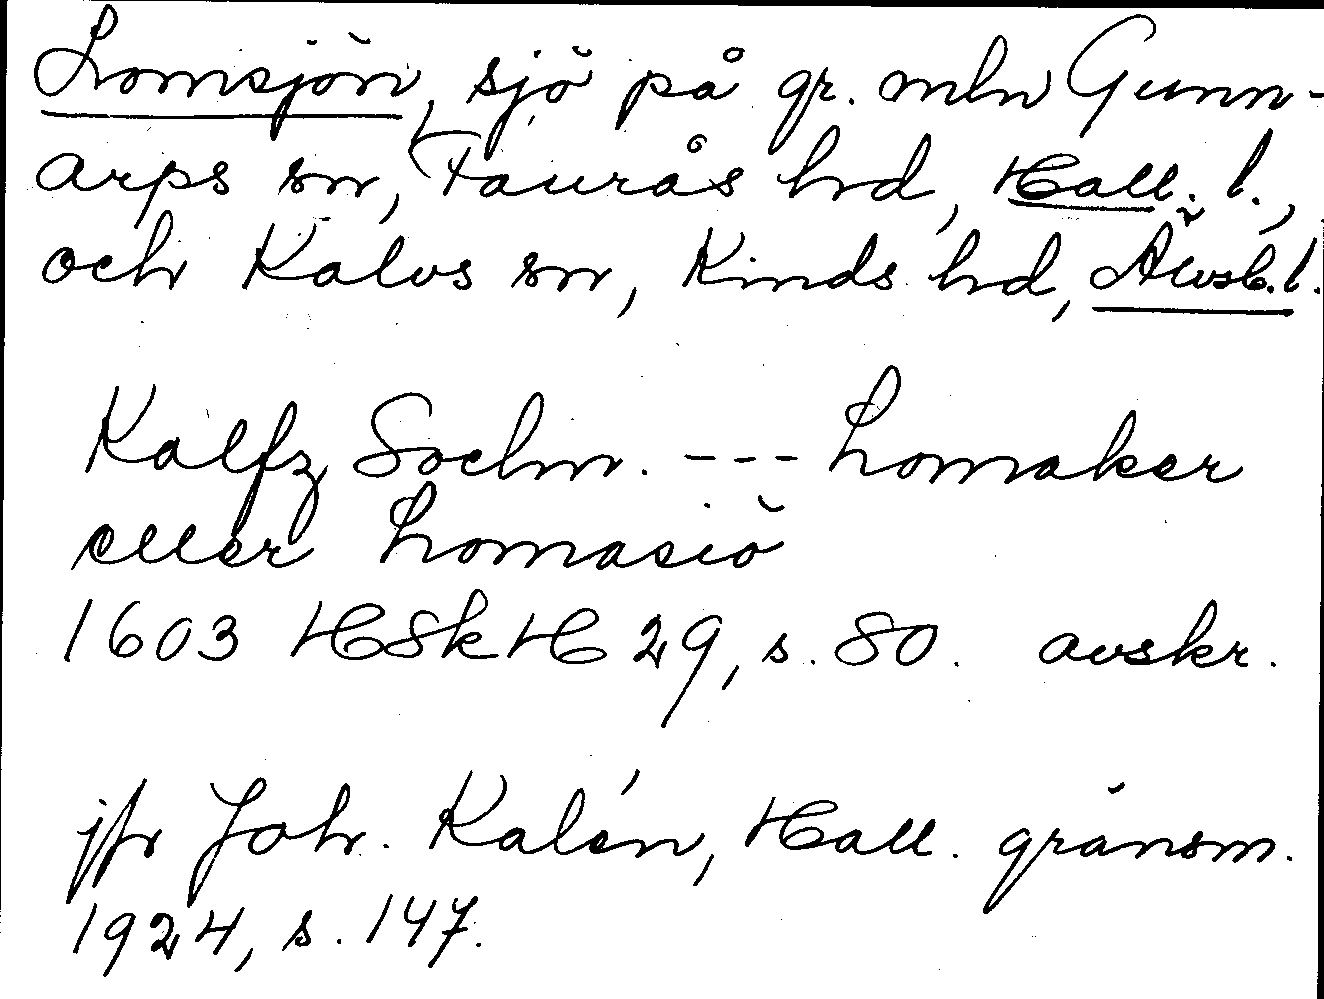 Lomsjön, sjö på gr. mln Gunn-
arps sn, Faurås hd, Hall. l.,
och Kalvs sn, Kinds hd, Älvsb. l.
Kalfz Sochn. --- Lomaker
eller Lomasiö
1603 HSkH 29, s. 80. avskr.
jfr Joh. Kalén, Hall. gränsm.
1924, s. 147.